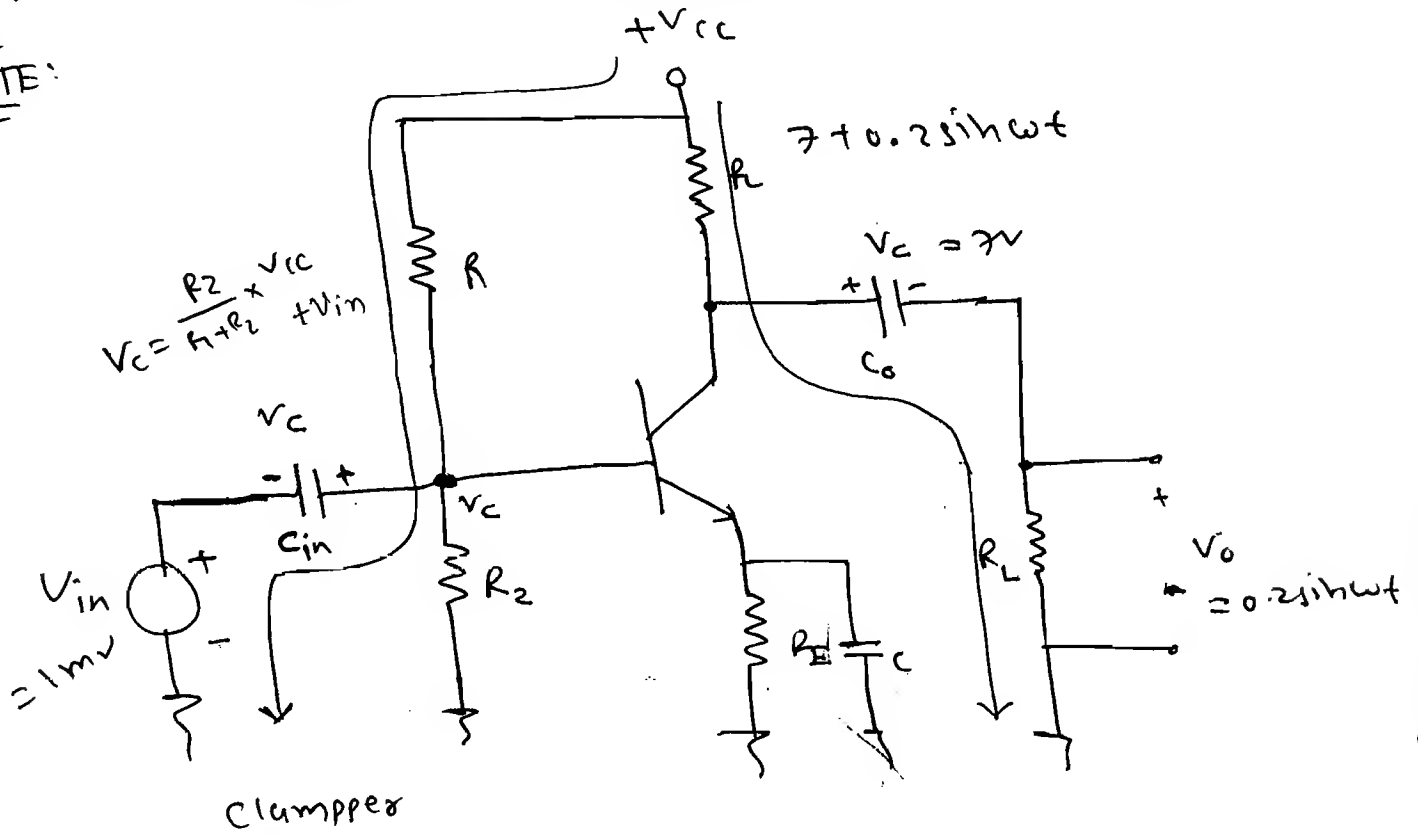 TE:
+Vcc
7+0.2sinωt
R
Vc = 7V
+ -
Co
R
Vc = R2/R1+R2 × Vcc + Vin
Vc
- +
Cin
Vc
Vin
+
-
= 1mV
R2
RE
C
RL
+
Vo
= 0.2sinωt
Clampper